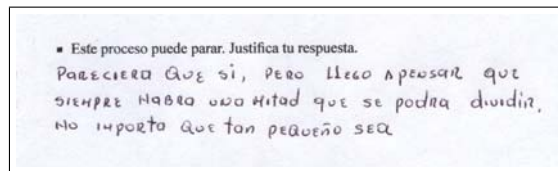 ▪ Este proceso puede parar. Justifica tu respuesta.
PARECIERA QUE SI, PERO LLEGO A PENSAR QUE
SIEMPRE HABRA UNA MITAD QUE SE PODRA DIVIDIR,
NO IMPORTA QUE TAN PEQUEÑO SEA